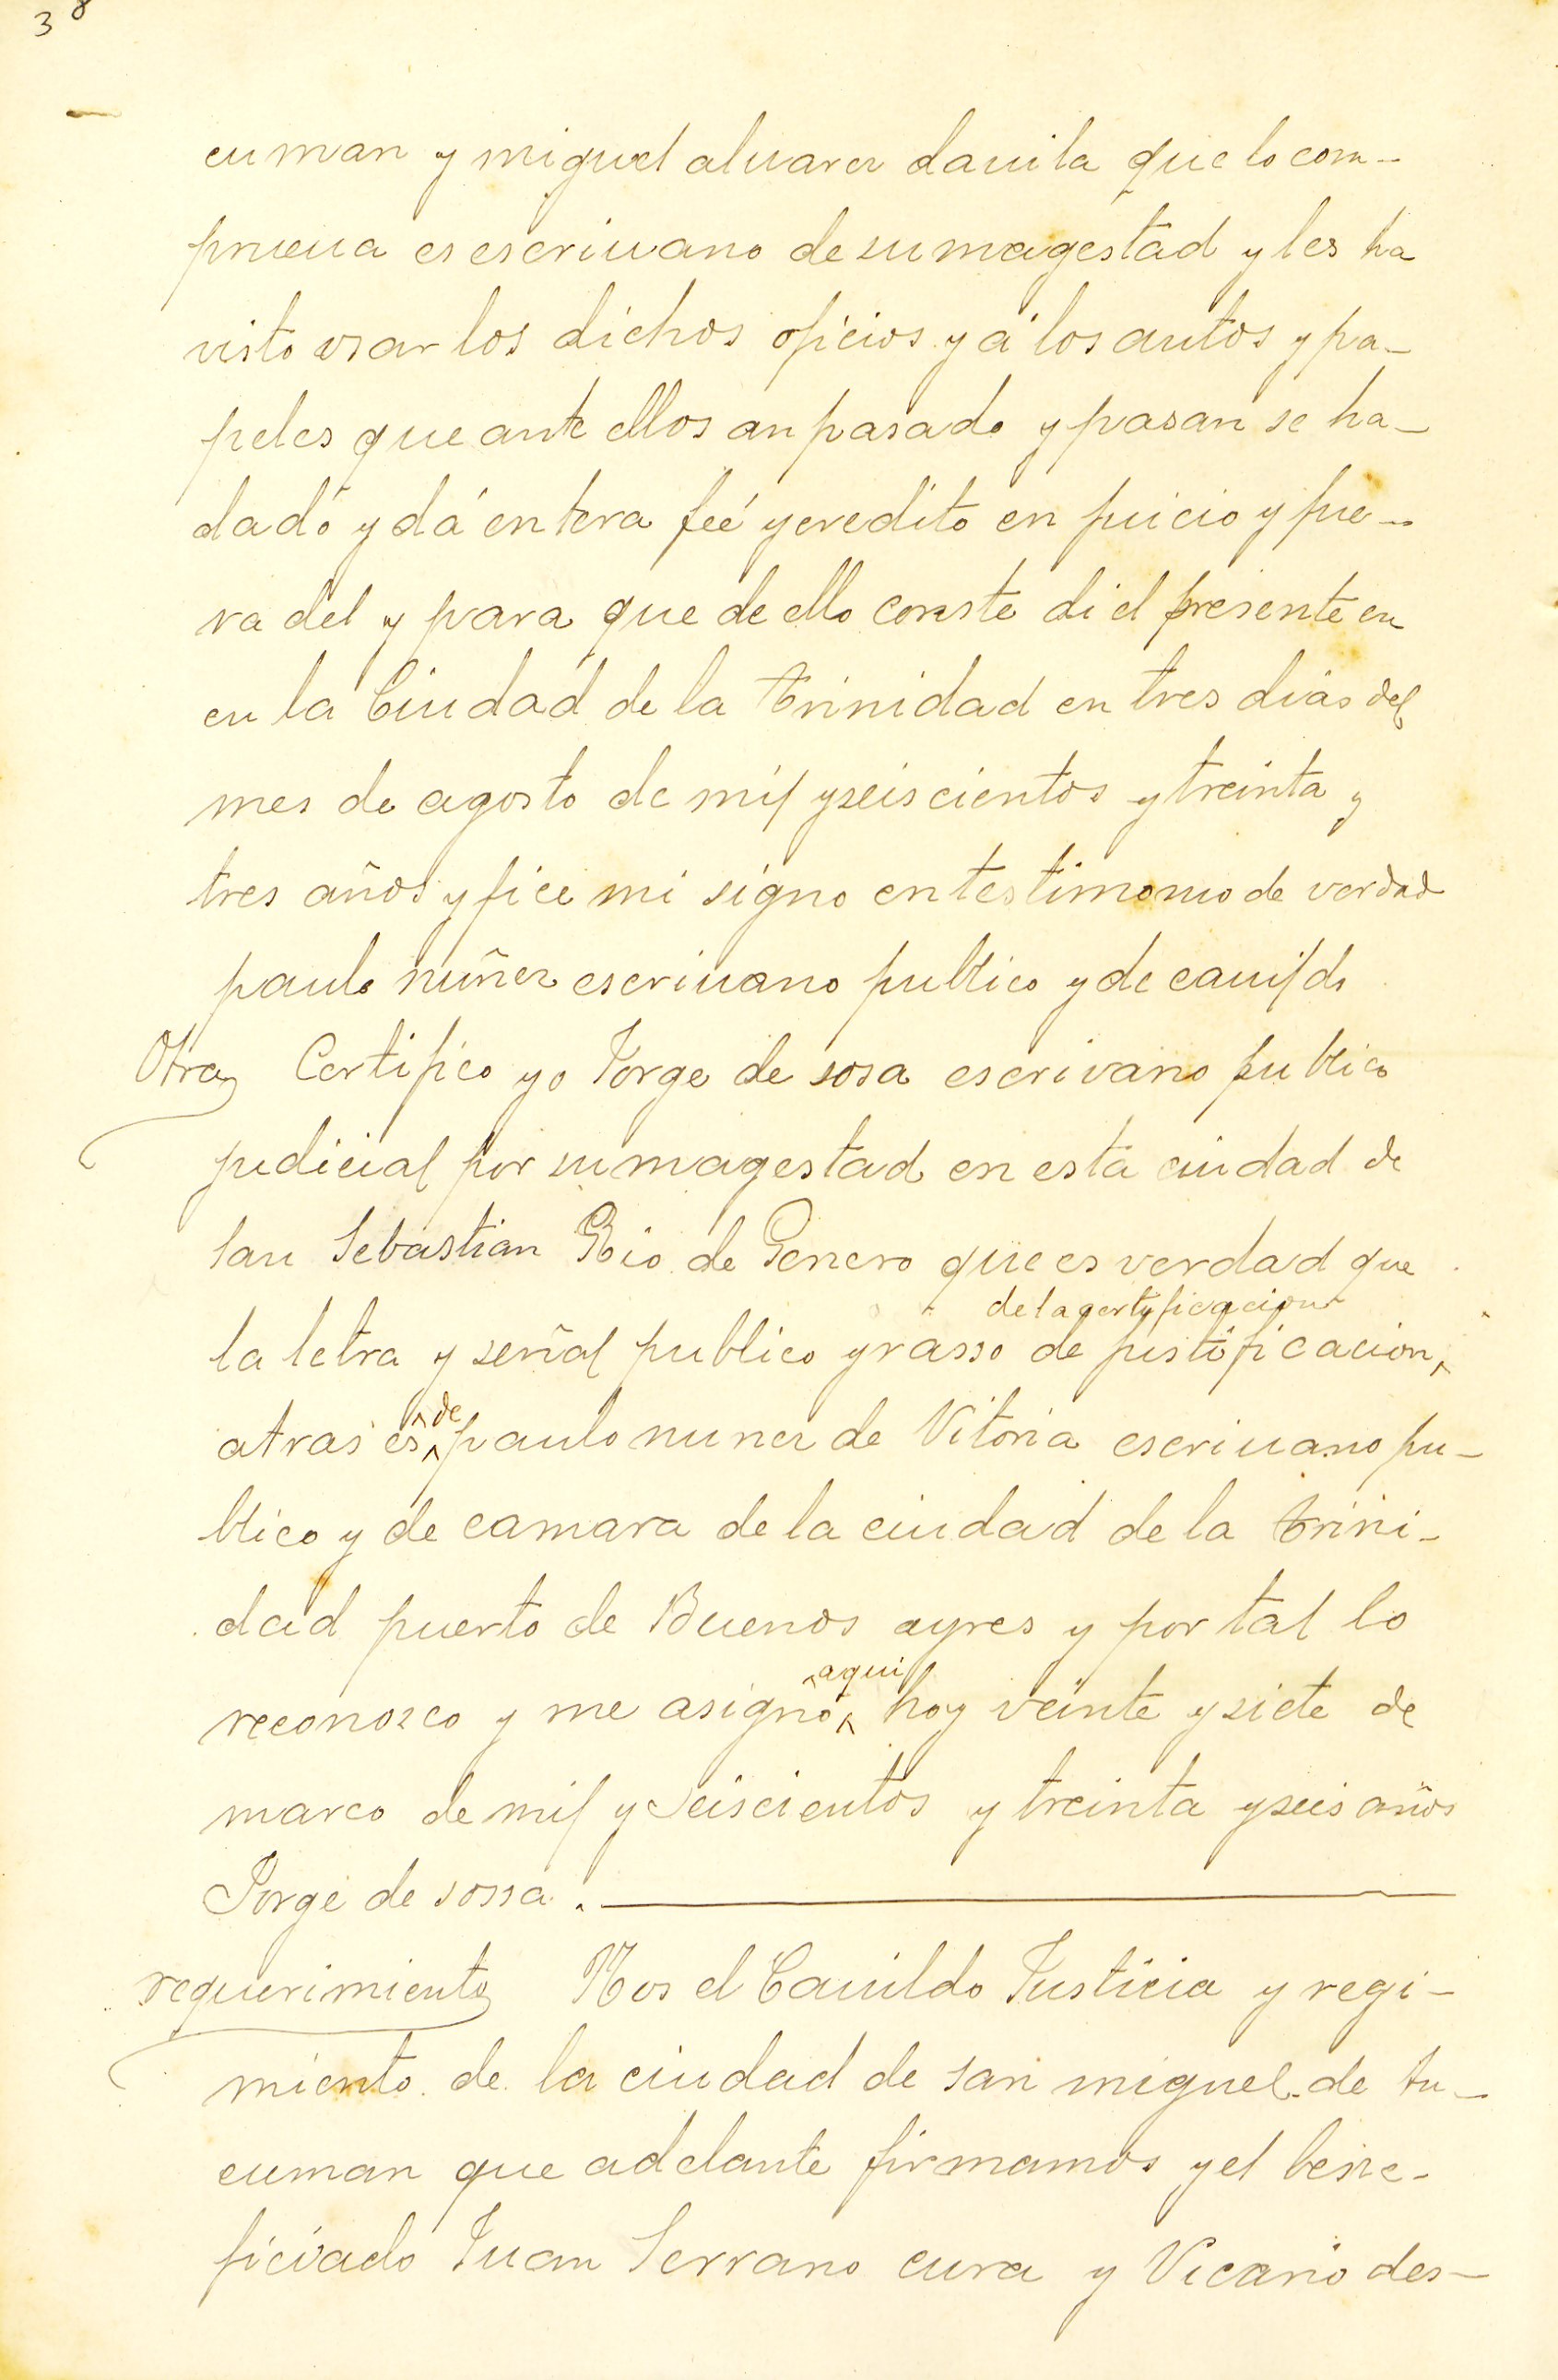 38
cuman y miguel aluarez dauila que lo com-
prueua es escriuano de su magestad y les ha
visto usar los dichos oficios y á los autos y pa-
peles que ante ellos an pasado y pasan se ha-
dadó y dá entera feé y credito en juicio y fue-
ra del y para que de ello conste di el presente en
en la Ciudad de la trinidad en tres dias del
mes de agosto de mil y seiscientos y treinta y
tres años y fice mi signo en testimonio de verdad
paulo nuñez escriuano publico y de cauildo
Otra Certifico yo Jorge de sosa escrivano publico
judicial por su magestad en esta ciudad de
San Sebastian Rio de Genero que es verdad que
de la certyficacion
la letra y señal publico y rasso de justificacion
atras es de paulo nunez de Vitoria escriuano pu-
blico y de camara de la ciudad de la trini-
dad puerto de Buenos ayres y por tal lo
aqui
reconozco y me asigno hoy veinte y siete de
marco de mil y Seiscientos y treinta y seis años
Jorge de sossa.
requerimiento Nos el Cauildo Justicia y regi-
miento de la ciudad de san miguel de tu-
cuman que adelante firmamos y el bene-
ficiado Juan Serrano cura y Vicario des-